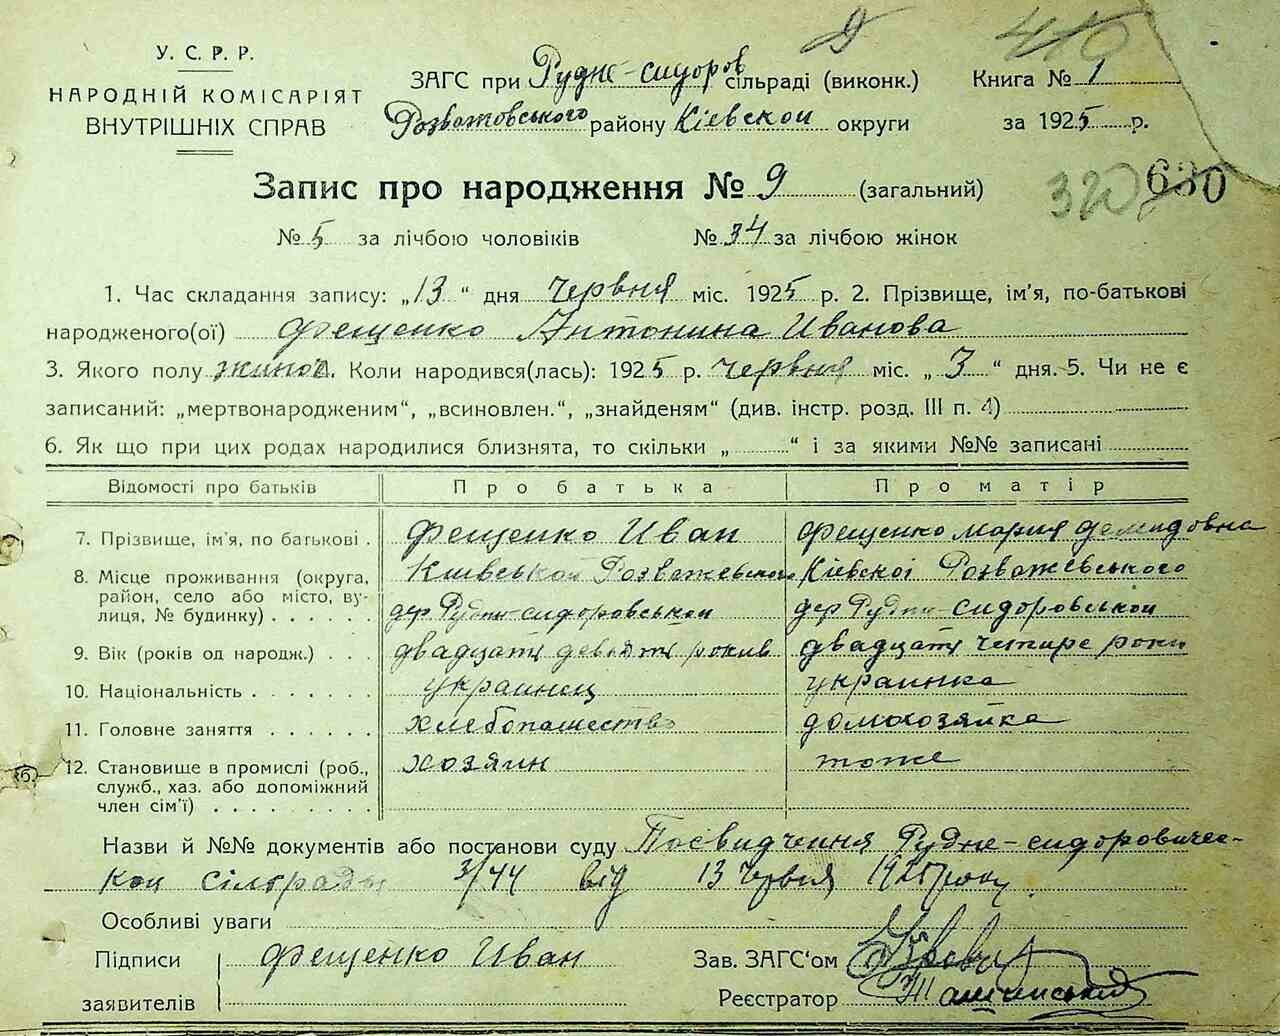 У. С. Р. Р.
НАРОДНІЙ КОМІСАРІЯТ
ВНУТРІШНІХ СПРАВ
ЗАГС при Рудне-сидоров сільраді (виконк.)
Розважовського району Кіевской округи
Книга № 1
за 1925 р.
410
320 630
Запис про народження № 9 (загальний)
№ 5 за лічбою чоловіків № 34 за лічбою жінок
1. Час складання запису: „13“ дня Червня міс. 1925 р. 2. Прізвище, ім'я, по-батькові
народженого(ої) Фещенко Антонина Иванова
3. Якого полу жиноч. Коли народився(лась): 1925 р. червня міс. „3“ дня. 5. Чи не є
записаний: „мертвонародженим“, „всиновлен.“, „знайденям“ (див. інстр. розд. III п. 4)
6. Як що при цих родах народилися близнята, то скільки „ “ і за якими №№ записані
Відомості про батьків Про батька Про матір
7. Прізвище, ім'я, по батькові . Фещенко Иван Фещенко мария демидовна
8. Місце проживання (округа, район, село або місто, вулиця, № будинку) . . . . . . Киевской Розважевского Кіевскоі Розважевського
дер Рудни-сидоровськой дер Рудни-сидоровськой
9. Вік (років од народж.) . . . двадцать девять рокив двадцать четире роки
10. Національність . . . . . . . украинец украинка
11. Головне заняття . . . . . . хлебопашество домохозяйка
12. Становище в промислі (роб., служб., хаз. або допоміжний член сім'ї) . . . . . . . . хозяин тоже
Назви й №№ документів або постанови суду Посвидчення Рудне-сидоровичес-
кой сілорады 3/44 від 13 червня 1925 року
Особливі уваги
Підписи заявителів Фещенко Иван
Зав. ЗАГС'ом
Реєстратор